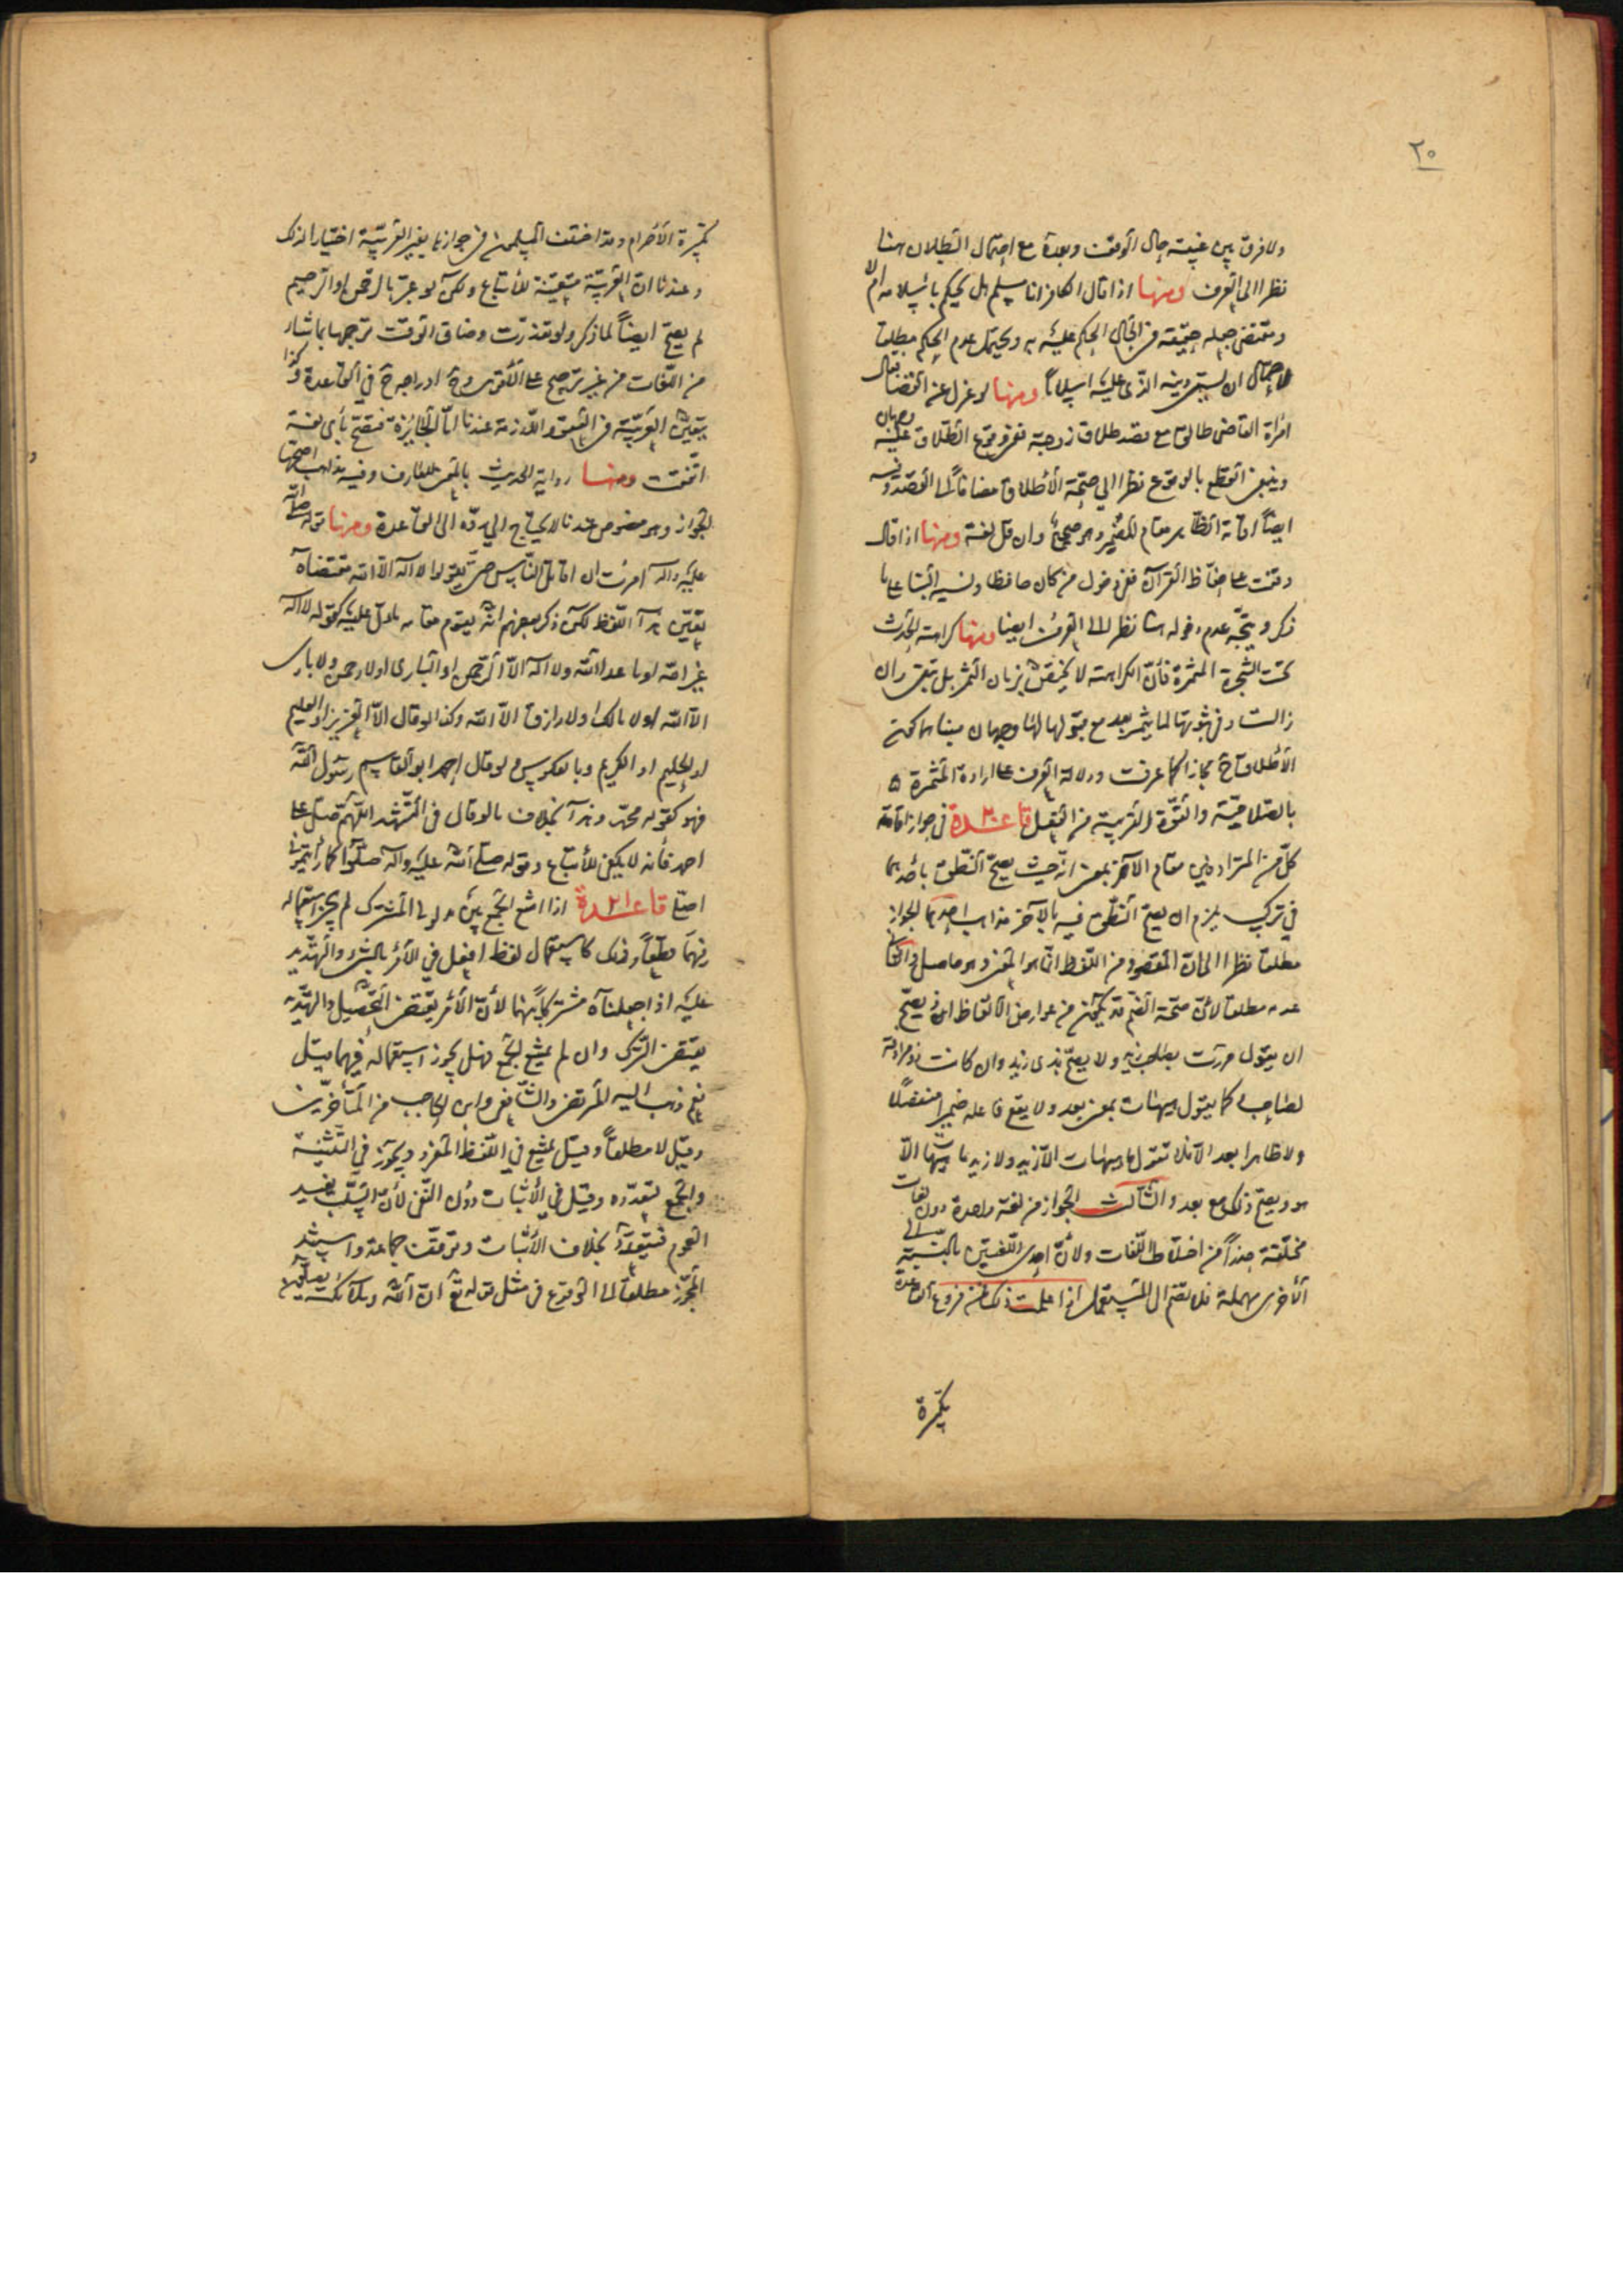 ٢٠
ولا فرق بين غيبته حال الوقف وبعده مع احتمال البطلان هنا
نظرا الى العرف ومنها اذا قال الكافر انا مسلم هل يحكم باسلامه ام لا
ومقتضى جعله حقيقة في الحال الحكم عليه به ويحتمل عدم الحكم مطلقا
لاحتمال ان يسمى دينه الذي عليه اسلاما ومنها لو عزل عن القضا فقال
امرأة القاضي طالق مع قصد طلاق زوجته ففي وقوع الطلاق عليه وجهان
وينبغي القطع بالوقوع نظرا الي صحة الاطلاق مضافا الى القصد وفيه
ايضا اقامة الظاهر مقام المضمر وهو صحيح وان قل لغة ومنها اذا قال
وقفت على حفاظ القرآن ففي دخول من كان حافظا ونسيه البنا على ما
ذكر ويتجه عدم دخوله هنا نظرا الى العرف ايضا ومنها كراهة الحدث
تحت الشجرة المثمرة فان الكراهة لا تختص بزمان الثمر بل تبقى وان
زالت وفي ثبوتها لما يثمر بعد مع قبولها لها وجهان مبناهما كون
الاطلاق ح مجازا كما عرفت ودلالة العرف على ارادة المثمرة
بالصلاحية والقوة القريبة من الفعل قاعدة ٢٠ في جواز اقامة
كل من المترادفين مقام الآخر بمعنى انه حيث يصح النطق باحدهما
في تركيب يلزم ان يصح النطق فيه بالآخر مذاهب احدها الجواز
مطلقا نظرا الى ان المقصود من اللفظ انما هو المعنى وهو حاصل والثاني
عدمه مطلقا لان صحة الضم قد تكون من عوارض الالفاظ اذ يصح
ان يقول مررت بصاحب زيد ولا يصح بذي زيد وان كانت ذو مرادفة
لصاحب كما يقول هيهات بمعنى بعد ولا يقع فاعله ضميرا منفصلا
ولا ظاهرا بعد الا فلا تقول ما هيهات الا زيد ولا زيد ما هيهات الا
هو ويصح ذلك مع بعد والثالث الجواز من لغة واحدة دون لغات
مختلفة حذرا من اختلاط اللغات ولان احدى اللغتين بالنسبة الى
الاخرى مهملة فلا تضم الى المستعمل اذا علمت ذلك فمن فروع القاعدة
تكبيرة
تكبيرة الاحرام وقد اختلف المسلمون في جوازها بغير العربية اختيارا لذلك
وعندنا ان العربية متعينة للاتباع ولكن لو عبر بالرحمن او الرحيم
لم يصح ايضا لما ذكر ولو تعذرت وضاق الوقت ترجمها بما شاء
من اللغات من غير ترجيح على الاقوى وح ادراجه ح في القاعدة وكذا
يتعين العربية في اللازمة عندنا اما الجائزة فتصح باي لغة
اتفقت ومنها رواية الحديث بالمعنى للعارف وفيه مذاهب اصحها
الجواز وهو منصوص عندنا لا يحتاج الي رده الى القاعدة ومنها قوله صلى الله
عليه وآله امرت ان اقاتل الناس حتى يقولوا لا اله الا الله مقتضاه
تعين هذا اللفظ لكن ذكر بعضهم انه يقوم مقامه ما دل عليه كقوله لا اله
غير الله او ما عدا الله ولا اله الا الرحمن او الباري او لا رحمن ولا باري
الا الله او لا مالك او لا رازق الا الله وكذا لو قال الا العزيز او العليم
او الحليم او الكريم وبالعكوس ولو قال احمد ابو القاسم رسول الله
فهو كقوله محمد وهذا بخلاف ما لو قال في التشهد اللهم صل على
احمد فانه لا يكفي للاتباع وقوله صلى الله عليه وآله صلوا كما رأيتموني
اصلي قاعدة ٢١ اذا امتنع الجمع بين مدلولي المشترك لم يجز استعماله
فيهما قطعا وذلك كاستعمال لفظ افعل في الامر بالشيء والتهديد
عليه اذا جعلناه مشتركا بينهما لان الامر يقتضي التحصيل والتهديد
يقتضي الترك وان لم يمتنع الجمع فهل يجوز استعماله فيهما قيل
نعم ذهب اليه المرتضى والشافعي وابن الحاجب من المتأخرين
وقيل لا مطلقا وقيل يمتنع في اللفظ المفرد ويجوز في التثنية
والجمع لتعدده وقيل في الاثبات دون النفي لان السلب يفيد
العموم فيتعدد بخلاف الاثبات وتوقف جماعة واستند
المجوز مطلقا الى الوقوع في مثل قوله تع ان الله وملائكته يصلون